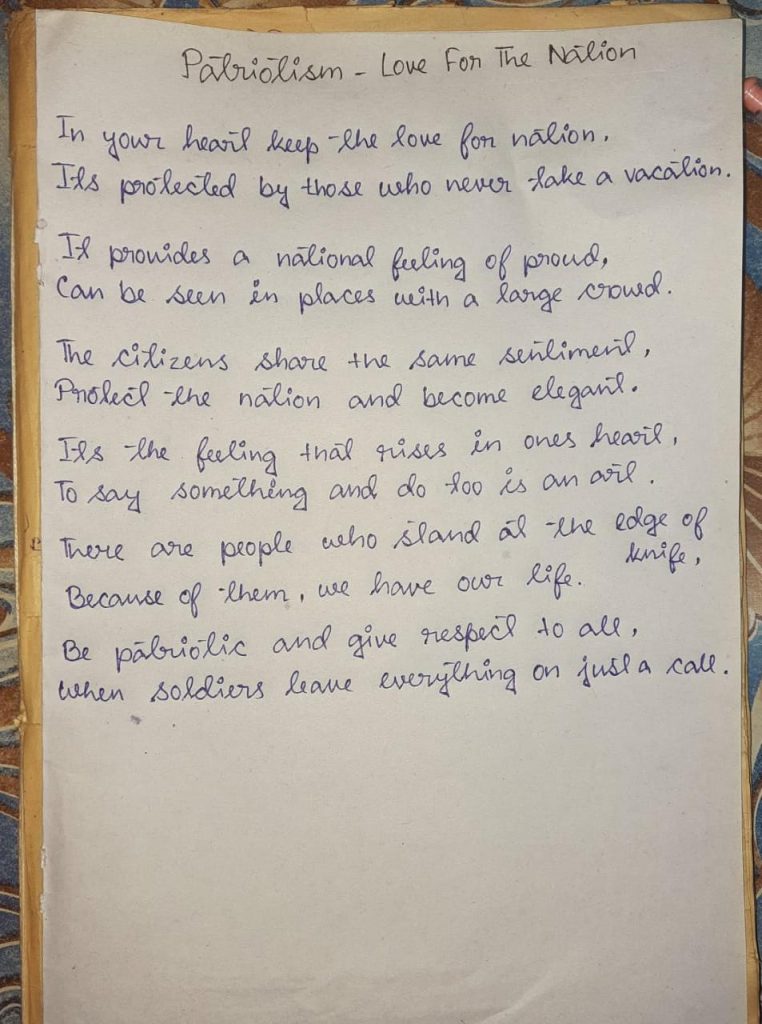 Patriotism - Love For The Nation
In your heart keep the love for nation,
Its protected by those who never take a vacation.
It provides a national feeling of proud,
Can be seen in places with a large crowd.
The citizens share the same sentiment,
Protect the nation and become elegant.
Its the feeling that rises in ones heart,
To say something and do too is an art.
There are people who stand at the edge of
knife,
Because of them, we have our life.
Be patriotic and give respect to all,
When soldiers leave everything on just a call.